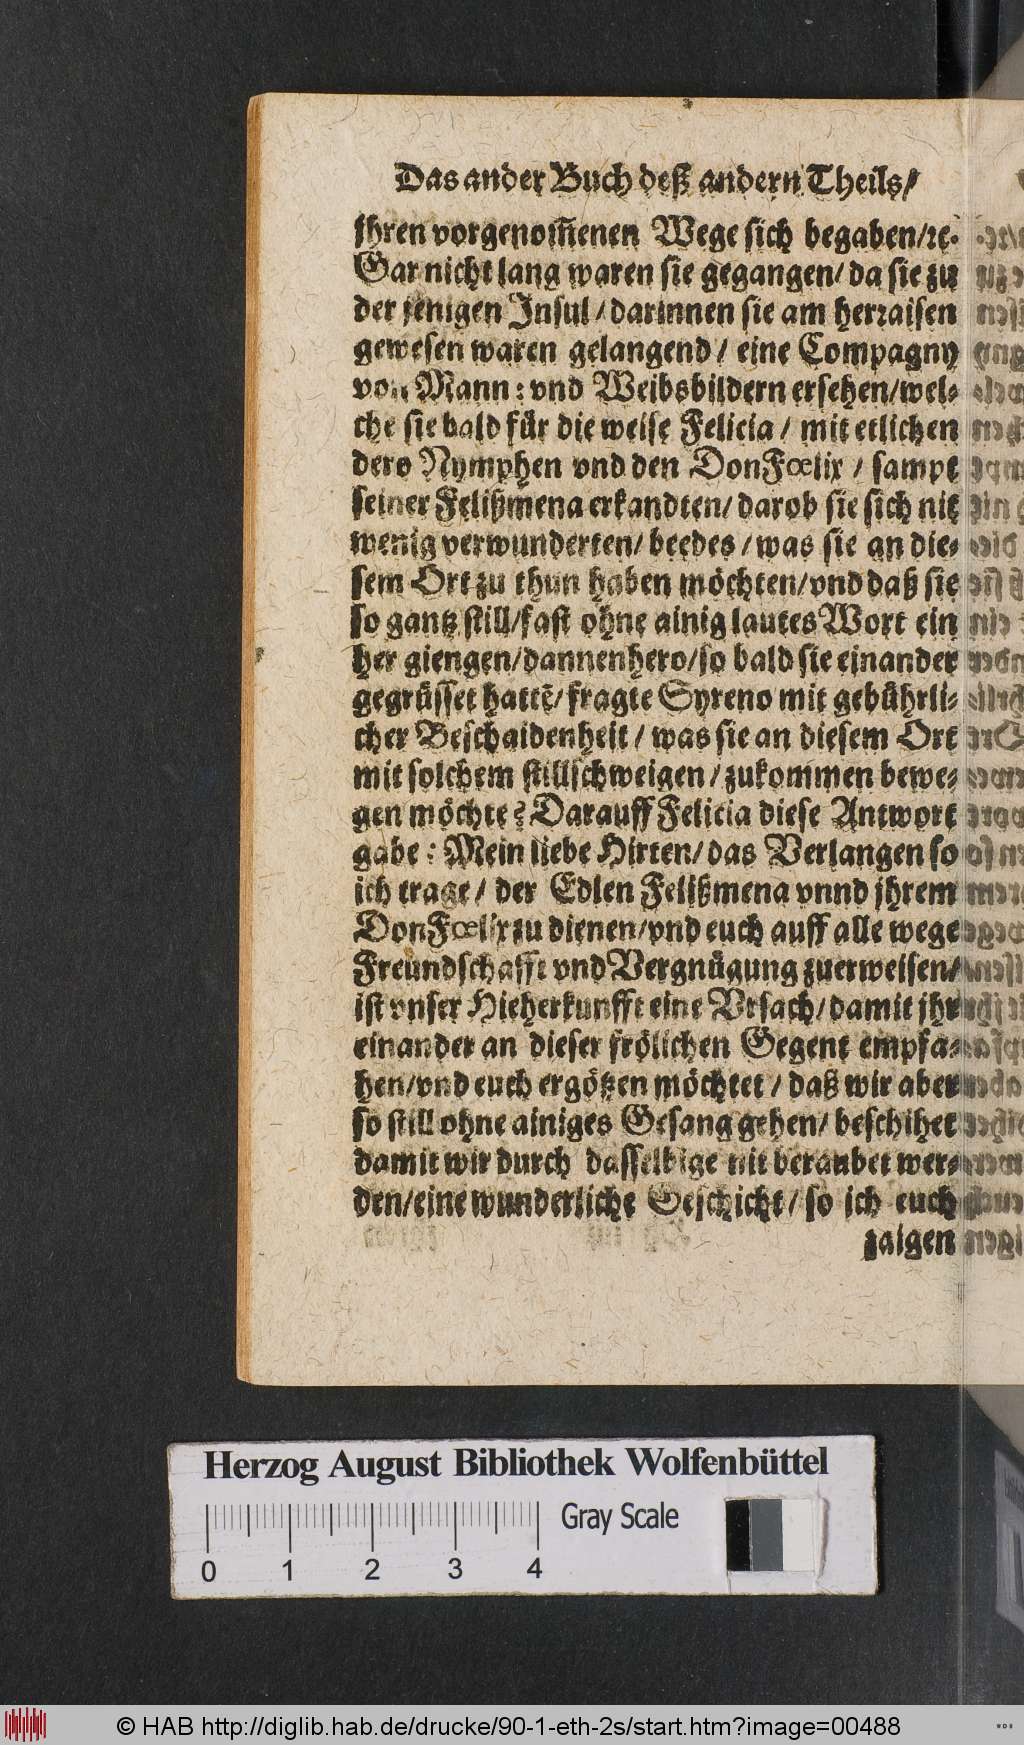 Das ander Buch deß andern Theils/
jhren vorgenom̃enen Wege sich begaben/ꝛc.
Gar nicht lang waren sie gegangen/ da sie zu
der jenigen Insul / darinnen sie am herꝛaisen
gewesen waren gelangend / eine Compagny
von Mann: vnd Weibsbildern ersehen/wel-
che sie bald für die weise Felicia / mit etlichen
dero Nymphen vnd den Don Fœlix / sampt
seiner Felißmena erkandten/ darob sie sich nit
wenig verwunderten/ beedes / was sie an die-
sem Ort zu thun haben möchten/vnd daß sie
so gantz still/fast ohne ainig lautes Wort ein
her giengen/dannenhero/so bald sie einander
gegrüsset hattẽ/ fragte Syreno mit gebührli-
cher Beschaidenheit / was sie an diesem Ort
mit solchem stillschweigen / zukommen bewe-
gen möchte? Darauff Felicia diese Antwort
gabe: Mein liebe Hirten/ das Verlangen so
ich trage / der Edlen Felißmena vnnd jhrem
Don Fœlix zu dienen/vnd euch auff alle wege
Freundschafft vnd Vergnügung zuerweisen/
ist vnser Hieherkunfft eine Vrsach/ damit jhr
einander an dieser frölichen Gegent empfa-
hen/vnd euch ergötzen möchtet / daß wir aber
so still ohne ainiges Gesang gehen/ beschihet
damit wir durch dasselbige nit beraubet wer-
den/eine wunderliche Geschicht / so ich euch
zaigen
Herzog August Bibliothek Wolfenbüttel
Gray Scale
0 1 2 3 4
© HAB http://diglib.hab.de/drucke/90-1-eth-2s/start.htm?image=00488